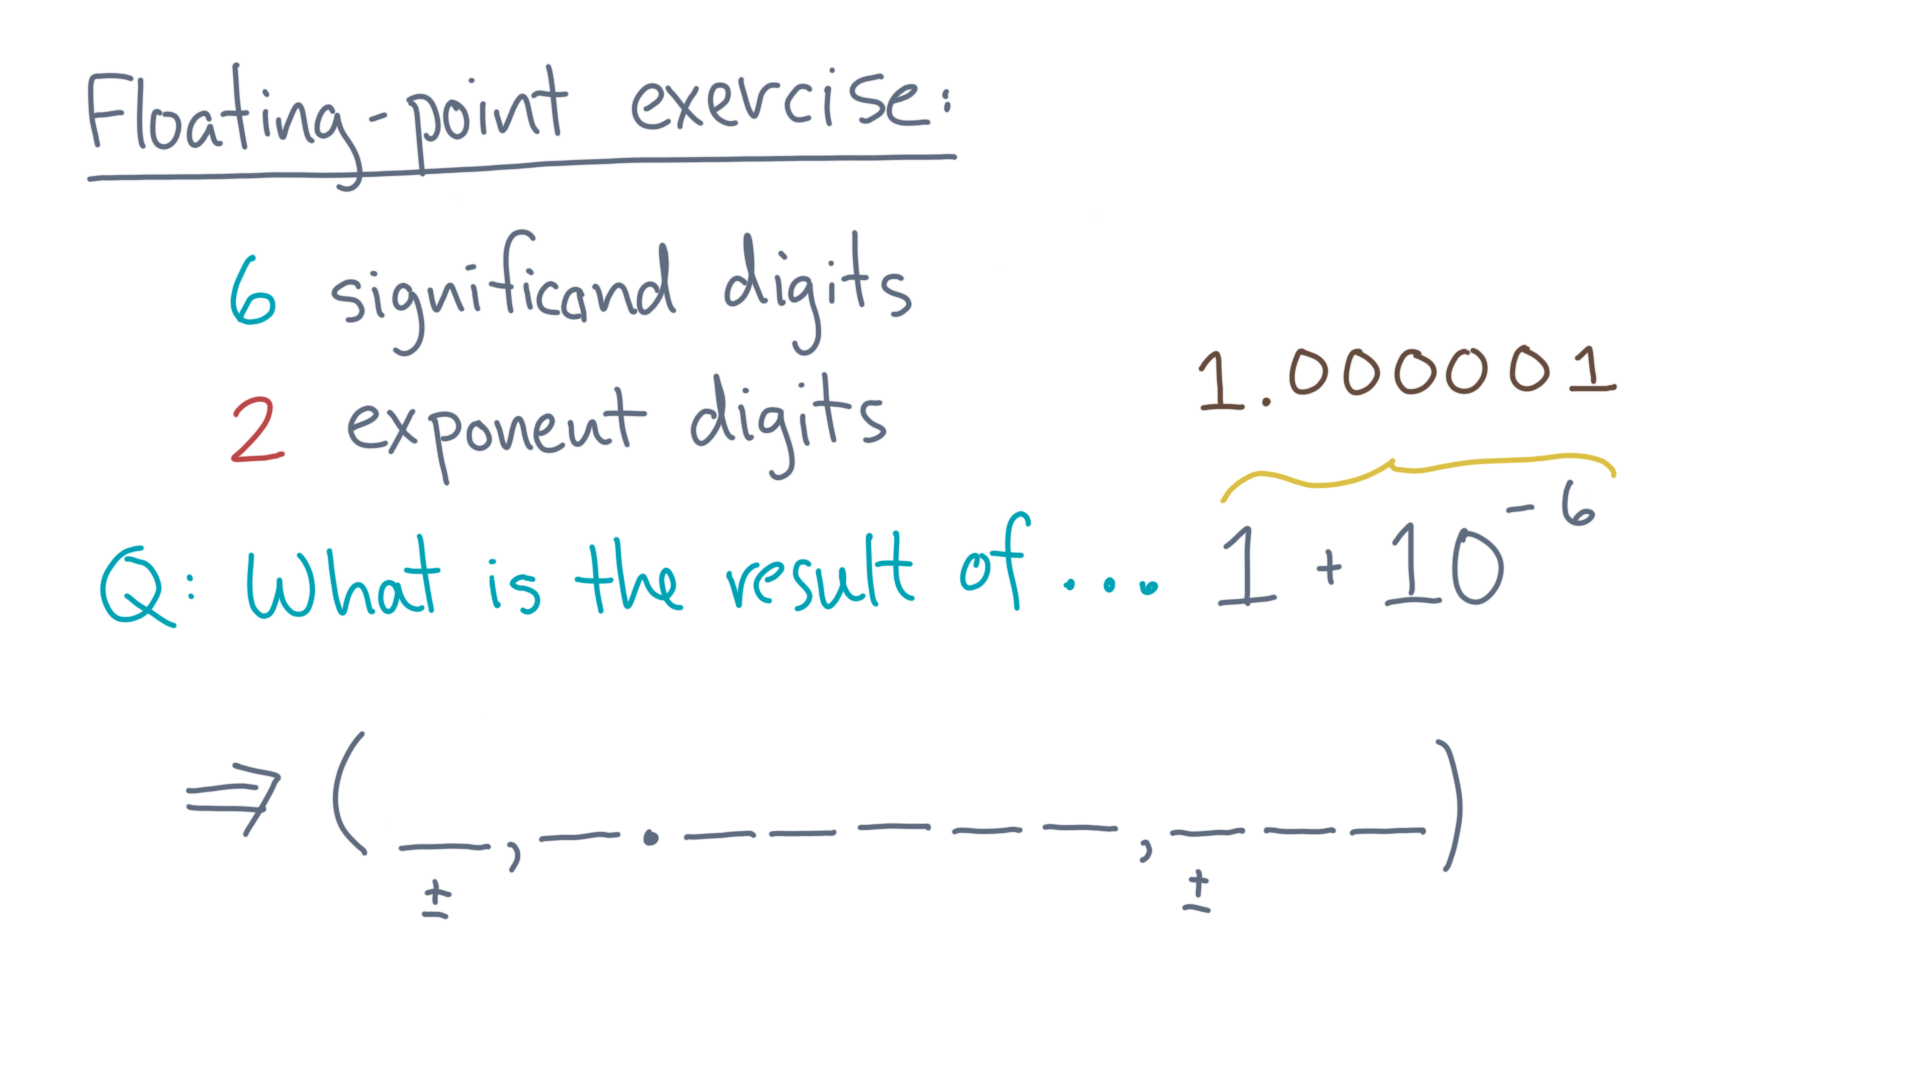 Floating-point exercise:
6 significand digits
2 exponent digits
1.000001
Q: What is the result of ... 1 + 10^-6
⇒ ( __ , __ . __ __ __ __ __ , __ __ __ )
± ±